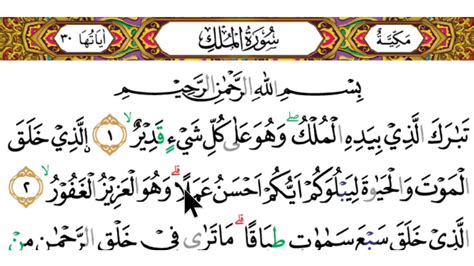 مَكِّيَّةٌ سُوْرَةُ الْمُلْكِ اٰيَاتُهَا ٣٠
بِسْمِ اللهِ الرَّحْمٰنِ الرَّحِيْمِ
تَبٰرَكَ الَّذِيْ بِيَدِهِ الْمُلْكُ ۖ وَهُوَ عَلٰى كُلِّ شَيْءٍ قَدِيْرٌ ۙ ١ اِلَّذِيْ خَلَقَ
الْمَوْتَ وَالْحَيٰوةَ لِيَبْلُوَكُمْ اَيُّكُمْ اَحْسَنُ عَمَلًا ۗ وَهُوَ الْعَزِيْزُ الْغَفُوْرُ ۙ ٢
الَّذِيْ خَلَقَ سَبْعَ سَمٰوٰتٍ طِبَاقًا ۗ مَا تَرٰى فِيْ خَلْقِ الرَّحْمٰنِ مِنْ